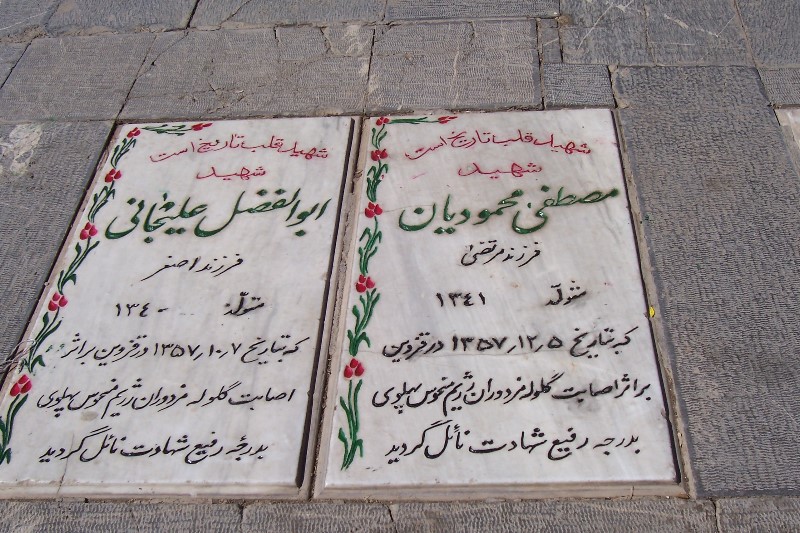 شهید قلب تاریخ است
شهید
مصطفی محمودیان
فرزند مرتضی
متولد ۱۳۴۱
که بتاریخ ۱۳۵۷٫۱۲٫۵ در قزوین
بر اثر اصابت گلوله مزدوران رژیم منحوس پهلوی
بدرجه رفیع شهادت نائل گردید
شهید قلب تاریخ است
شهید
ابوالفضل علیخانی
فرزند اصغر
متولد ۱۳۴۰
که بتاریخ ۱۳۵۷٫۱۰٫۷ در قزوین بر اثر
اصابت گلوله مزدوران رژیم منحوس پهلوی
بدرجه رفیع شهادت نائل گردید